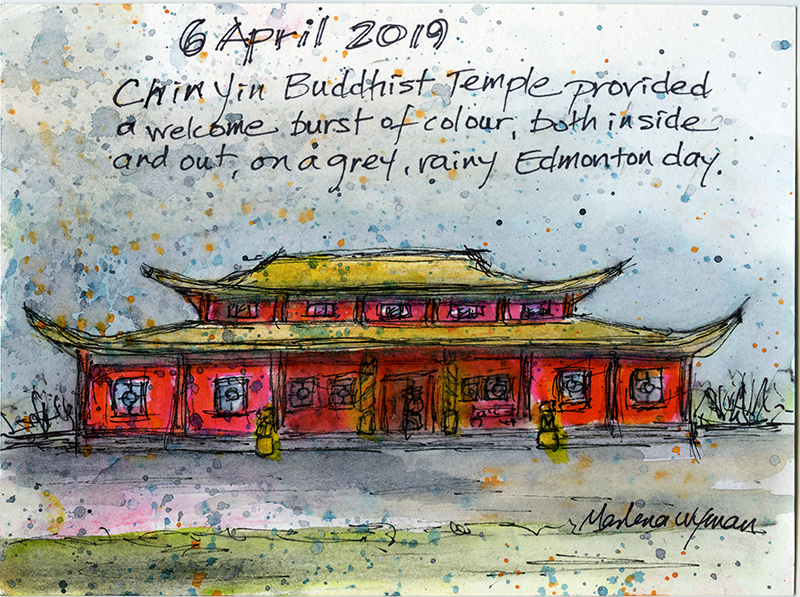 6 April 2019
Chin Yin Buddhist Temple provided
a welcome burst of colour, both inside
and out, on a grey, rainy Edmonton day.
Marlena Wyman